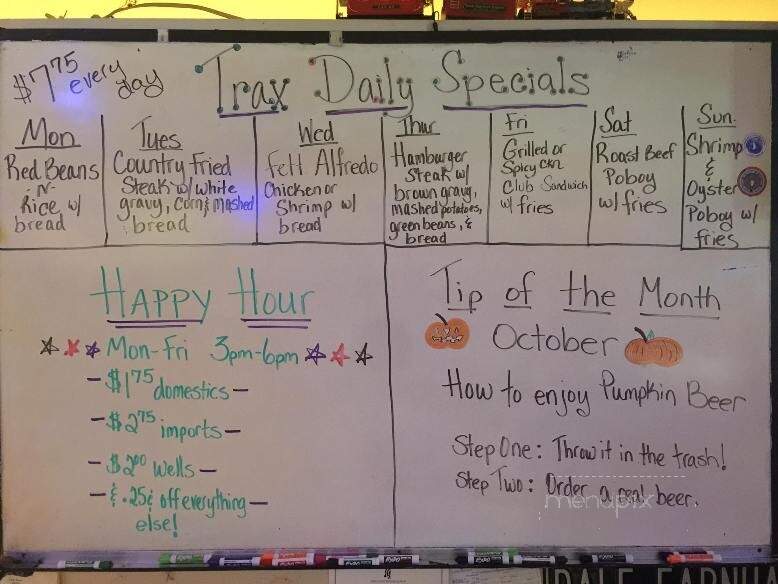 $7.75 every day
Trax Daily Specials
Mon
Red Beans
-n-
Rice w/
bread
Tues
Country Fried
Steak w/ white
gravy, corn & mashed
bread
Wed
Fett Alfredo
Chicken or
Shrimp w/
bread
Thur
Hamburger
Steak w/
brown gravy,
mashed potatoes,
green beans, &
bread
Fri
Grilled or
Spicy Ckn
Club Sandwich
w/ fries
Sat
Roast Beef
Poboy
w/ fries
Sun.
Shrimp
&
Oyster
Poboy w/
fries
Happy Hour
Mon-Fri 3pm-6pm
- $1.75 domestics -
- $2.75 imports -
- $2.00 Wells -
- & .25¢ off everything -
else!
Tip of the Month
October
How to enjoy Pumpkin Beer
Step One: Throw it in the trash!
Step Two: Order a real beer.
menupix
DALE EARNHA